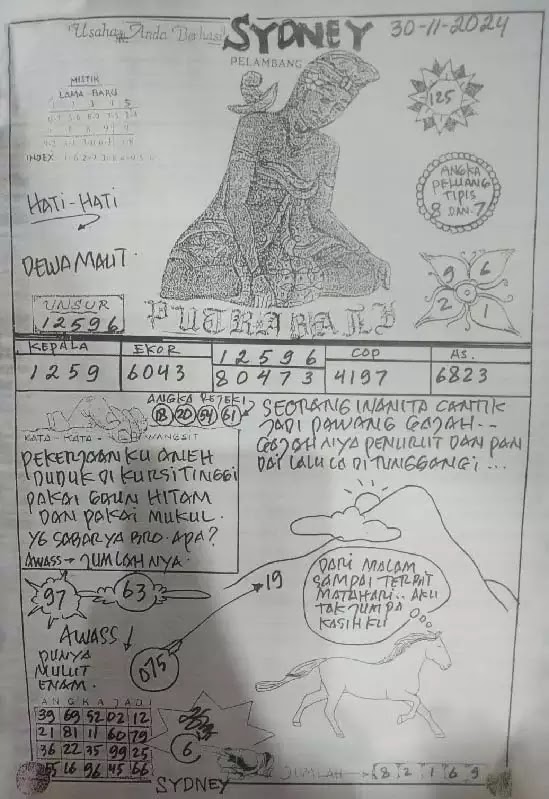 "Usaha Anda Berhasil"
SYDNEY
30-11-2024
PELAMBANG
MISTIK
LAMA - BARU
INDEX
125
HATI-HATI
ANGKA
PELUANG
TIPIS
8 DAN 7
DEWA MAUT.
9 6
2 1
UNSUR
12596
PUTRA BALI
KEPALA
EKOR
12596
COP
AS.
1259
6043
80473
4197
6823
ANGKA REJEKI
18 20 54 61
KATA - KATA - WANGSIT
PEKERJAAN KU ANEH
DUDUK DI KURSI TINGGI
PAKAI GAUN HITAM
DAN PAKAI MUKUL.
YG SABAR YA BRO. APA?
AWASS → JUMLAH NYA.
SEORANG WANITA CANTIK
JADI PAWANG GAJAH--
GAJAH NYA PENURUT DAN PAN
DAI LALU LO DI TUNGGANGI ...
97
63
19
DARI MALAM
SAMPAI TERBIT
MATAHARI.. AKU
TAK JUMPA
KASIH KU
AWASS
PUNYA
MULUT
ENAM.
075
ANGKA JADI
39 69 52 02 12
21 81 11 60 79
36 22 35 99 25
55 16 96 45 66
6
SYDNEY
JUMLAH → 8 2 1 6 9